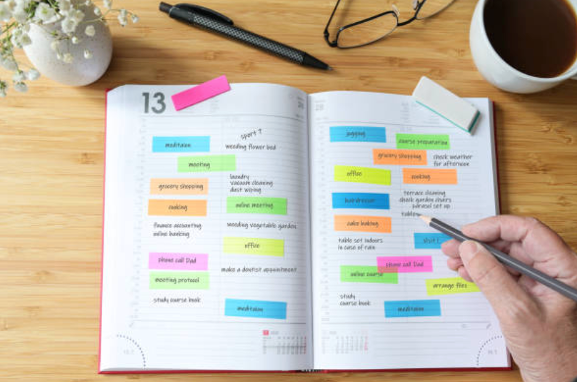 13
meditation
sport ?
weeding flower bed
meeting
laundry
vacuum cleaning
dust wiping
grocery shopping
cooking
online meeting
finance accounting
online banking
weeding vegetable garden
office
phone call Dad
make a dentist appointment
meeting protocol
study course book
meditation
jogging
course preparation
grocery shopping
check weather
for afternoon
office
cooking
terrace cleaning
check garden chairs
parasol set up
cake baking
table set indoors
in case of rain
phone call Dad
online course
arrange files
study
course book
meditation